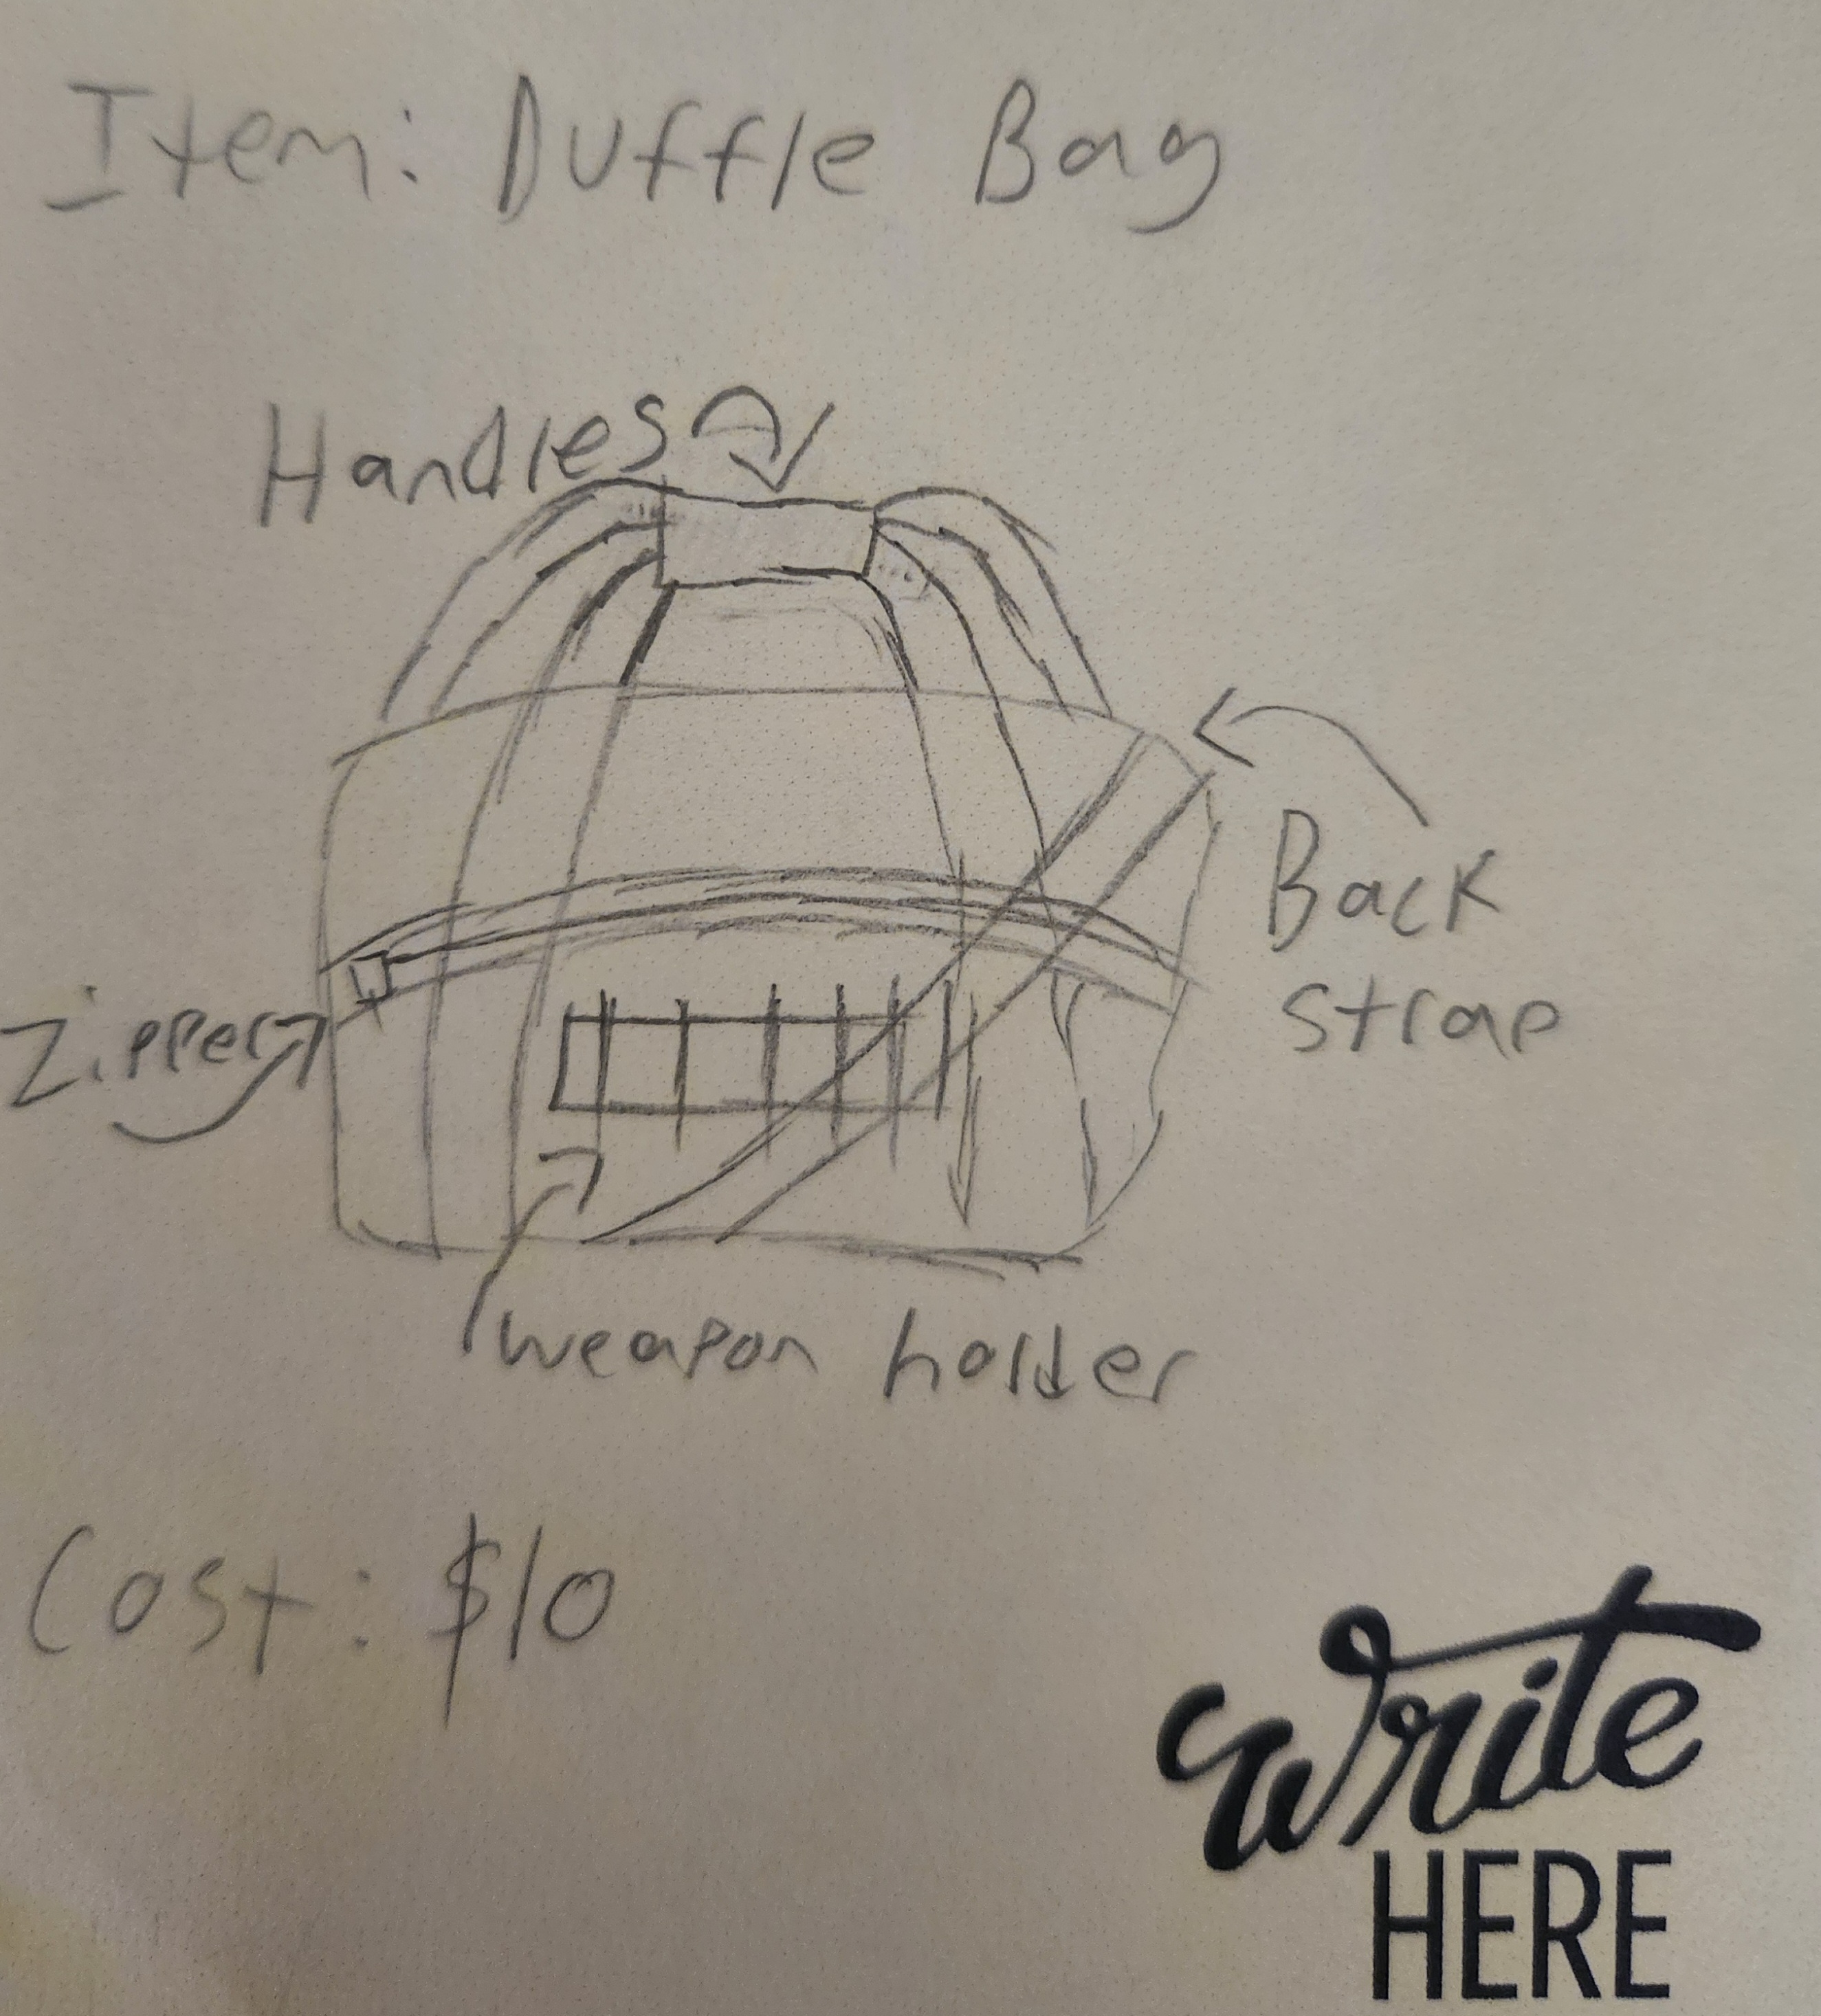 Item: Duffle Bag
Handles
Back
Strap
Zipper
weapon holder
Cost: $10
Write
HERE